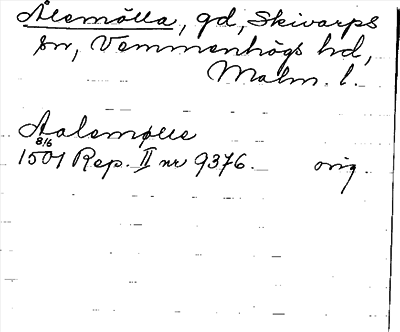 Ålemölla, gd, Skivarps
sn, Vemmenhögs hd,
Malm. l.
Aalemølle
8/6
1501 Rep. II nr 9376. orig.